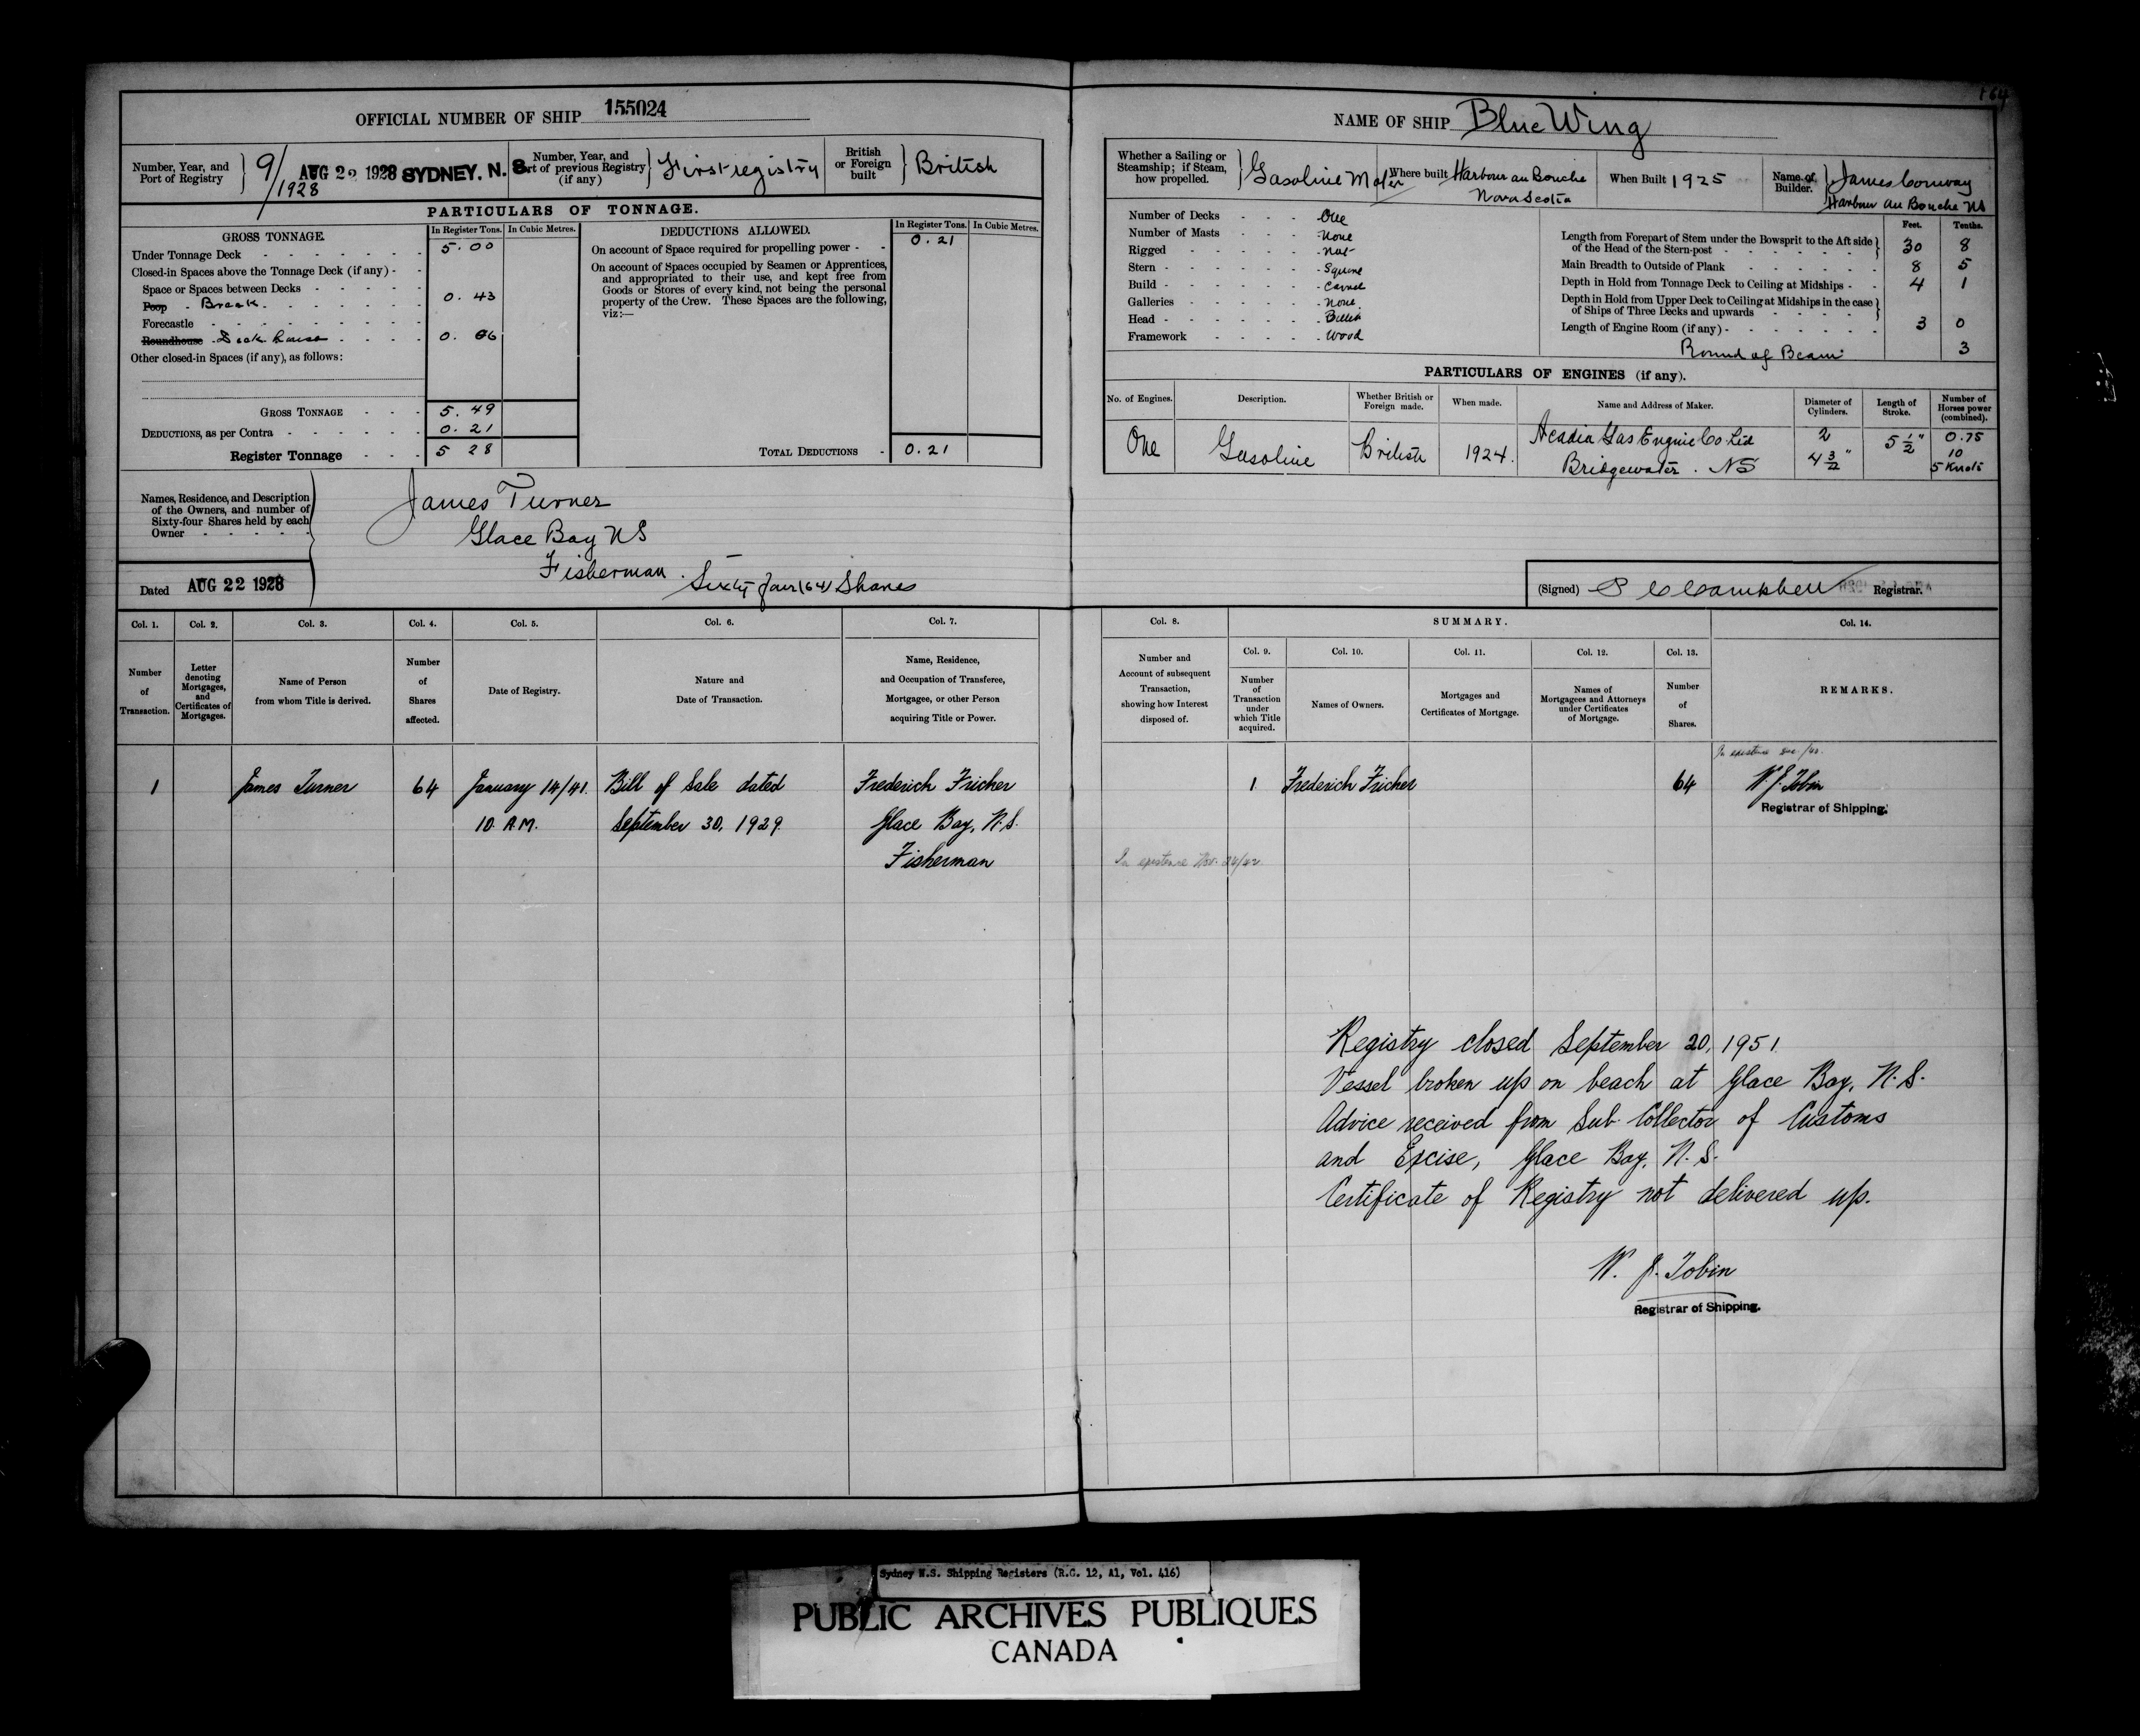 164
OFFICIAL NUMBER OF SHIP 155024
Number, Year, and Port of Registry 9/1928 AUG 22 1928 SYDNEY. N. S.
Number, Year, and Port of previous Registry (if any) First registry
British or Foreign built British
PARTICULARS OF TONNAGE.
GROSS TONNAGE. In Register Tons. In Cubic Metres.
Under Tonnage Deck 5.00
Closed-in Spaces above the Tonnage Deck (if any)
Space or Spaces between Decks
Poop Break 0.43
Forecastle
Roundhouse Deck house 0.06
Other closed-in Spaces (if any), as follows:
GROSS TONNAGE 5.49
DEDUCTIONS, as per Contra 0.21
Register Tonnage 5 28
DEDUCTIONS ALLOWED. In Register Tons. In Cubic Metres.
On account of Space required for propelling power 0.21
On account of Spaces occupied by Seamen or Apprentices,
and appropriated to their use, and kept free from
Goods or Stores of every kind, not being the personal
property of the Crew. These Spaces are the following,
viz:—
TOTAL DEDUCTIONS 0.21
Names, Residence, and Description
of the Owners, and number of
Sixty-four Shares held by each
Owner
James Turner
Glace Bay NS
Fisherman.
Sixty four (64) Shares
Dated AUG 22 1928
NAME OF SHIP Blue Wing
Whether a Sailing or Steamship; if Steam, how propelled. Gasoline Motor
Where built Harbour au Bouche Nova Scotia
When Built 1925
Name of Builder. James Conway Harbour au Bouche NS
Number of Decks One
Number of Masts None
Rigged Not
Stern Square
Build Carvel
Galleries None
Head Billet
Framework Wood
Feet. Tenths.
Length from Forepart of Stem under the Bowsprit to the Aft side of the Head of the Stern-post 30 8
Main Breadth to Outside of Plank 8 5
Depth in Hold from Tonnage Deck to Ceiling at Midships 4 1
Depth in Hold from Upper Deck to Ceiling at Midships in the case of Ships of Three Decks and upwards
Length of Engine Room (if any) 3 0
Round of Beam 3
PARTICULARS OF ENGINES (if any).
No. of Engines. Description. Whether British or Foreign made. When made. Name and Address of Maker. Diameter of Cylinders. Length of Stroke. Number of Horses power (combined).
One Gasoline British 1924. Acadia Gas Engine Co. Ltd 2 5 1/2" 0.75
Bridgewater. NS 4 3/2" 10
5 Knots
(Signed) P C Campbell Registrar.
Col. 1. Col. 2. Col. 3. Col. 4. Col. 5. Col. 6. Col. 7.
Number of Transaction.
Letter denoting Mortgages, and Certificates of Mortgages.
Name of Person from whom Title is derived.
Number of Shares affected.
Date of Registry.
Nature and Date of Transaction.
Name, Residence, and Occupation of Transferee, Mortgagee, or other Person acquiring Title or Power.
1 James Turner 64 January 14/41. Bill of Sale dated Frederich Fricker
10. A.M. September 30, 1929. Glace Bay, N.S.
Fisherman
Col. 8. SUMMARY. Col. 14.
Number and Account of subsequent Transaction, showing how Interest disposed of.
Col. 9. Col. 10. Col. 11. Col. 12. Col. 13.
Number of Transaction under which Title acquired.
Names of Owners.
Mortgages and Certificates of Mortgage.
Names of Mortgagees and Attorneys under Certificates of Mortgage.
Number of Shares.
REMARKS.
In existence /40.
1 Frederich Fricker 64 W. J. Tobin
Registrar of Shipping.
In existence Nov. 24/42
Registry closed September 20, 1951
Vessel broken up on beach at Glace Bay, N.S.
Advice received from Sub-Collector of Customs
and Excise, Glace Bay, N.S.
Certificate of Registry not delivered up.
W. J. Tobin
Registrar of Shipping.
Sydney N.S. Shipping Registers (R.G. 12, A1, Vol. 416)
PUBLIC ARCHIVES PUBLIQUES
CANADA